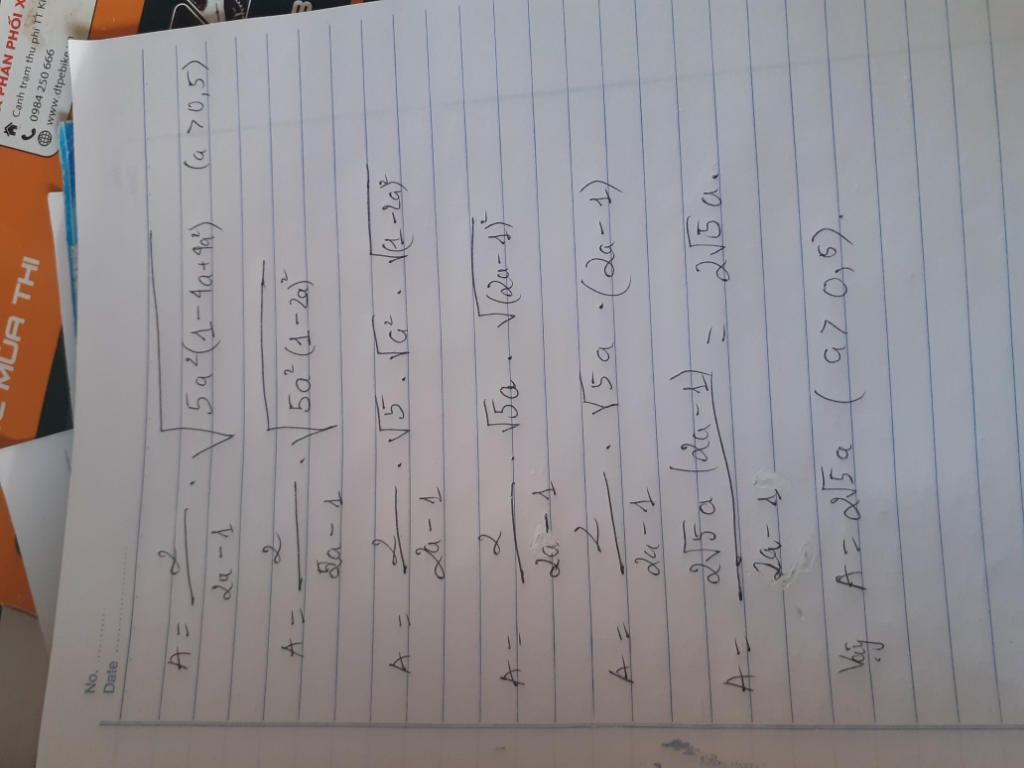 PHÂN PHỐI X
Cạnh trạm thu phí TT K
0984 250 666
www.dtpebike
MÙA THI
No.
Date
A = 2/(2a-1) . √(5a²(1-4a+4a²)) (a > 0,5)
A = 2/(2a-1) . √(5a²(1-2a)²)
A = 2/(2a-1) . √5 . √a² . √(1-2a)²
A = 2/(2a-1) . √5a . √(2a-1)²
A = 2/(2a-1) . √5a . (2a-1)
A = 2√5a(2a-1)/(2a-1) = 2√5a.
Vậy A = 2√5a (a > 0,5).